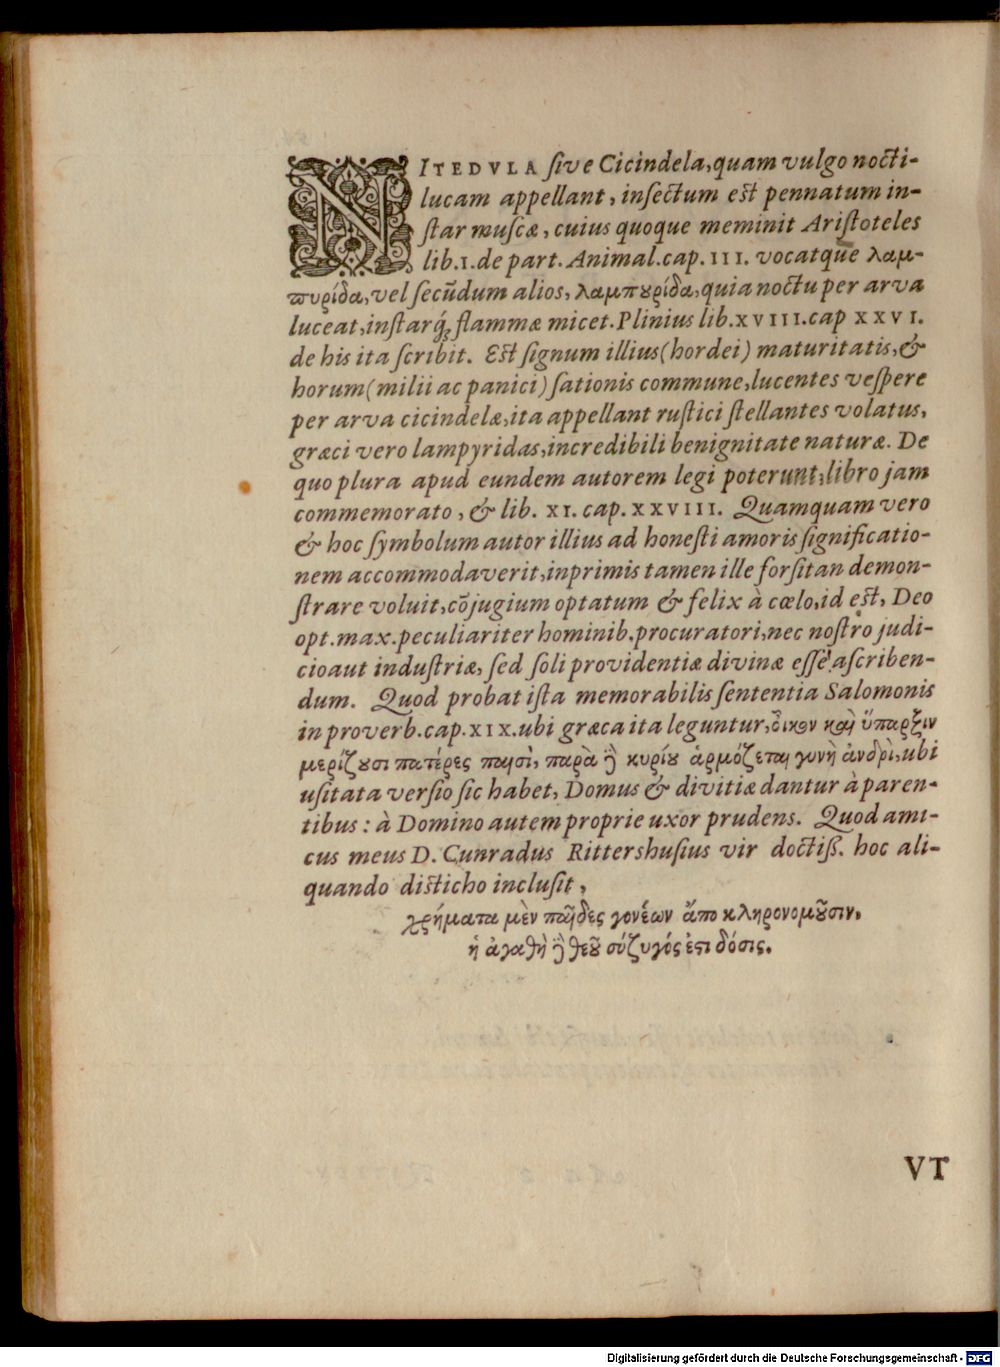 NITEDVLA ſive Cicindela, quam vulgo nocti-
lucam appellant, inſectum est pennatum in-
ſtar muſcæ, cuius quoque meminit Ariſtoteles
lib.1. de part. Animal. cap. III. vocatque λαμ-
πυρίδα, vel ſecũdum alios, λαμπουρίδα, quia noctu per arva
luceat, inſtarq́ꝫ flammæ micet. Plinius lib. XVIII. cap XXVI.
de his ita ſcribit. Est ſignum illius (hordei) maturitatis, &
horum (milii ac panici) ſationis commune, lucentes veſpere
per arva cicindelæ, ita appellant ruſtici ſtellantes volatus,
græci vero lampyridas, incredibili benignitate naturæ. De
quo plura apud eundem autorem legi poterunt, libro jam
commemorato, & lib. XI. cap. XXVIII. Quamquam vero
& hoc ſymbolum autor illius ad honeſti amoris ſignificatio-
nem accommodaverit, inprimis tamen ille forſitan demon-
ſtrare voluit, cõjugium optatum & felix à cœlo, id est, Deo
opt. max. peculiariter hominib. procuratori, nec noſtro judi-
cio aut induſtriæ, ſed ſoli providentiæ divinæ eſſe aſcriben-
dum. Quod probat iſta memorabilis ſententia Salomonis
in proverb. cap. XIX. ubi græca ita leguntur, οἶκον καὶ ὕπαρξιν
μερίζουσι πατέρες παισὶ, παρὰ δὲ κυρίου ἁρμόζεται γυνὴ ἀνδρὶ, ubi
uſitata verſio ſic habet, Domus & divitiæ dantur à paren-
tibus: à Domino autem proprie uxor prudens. Quod ami-
cus meus D. Cunradus Rittershuſius vir doctiſſ. hoc ali-
quando disticho incluſit,
χρήματα μὲν παῖδες γονέων ἄπο κληρονομοῦσιν,
ἡ ἀγαθὴ δὲ θεοῦ σύζυγός ἐστι δόσις.
VT
Digitalisierung gefördert durch die Deutsche Forschungsgemeinschaft - DFG